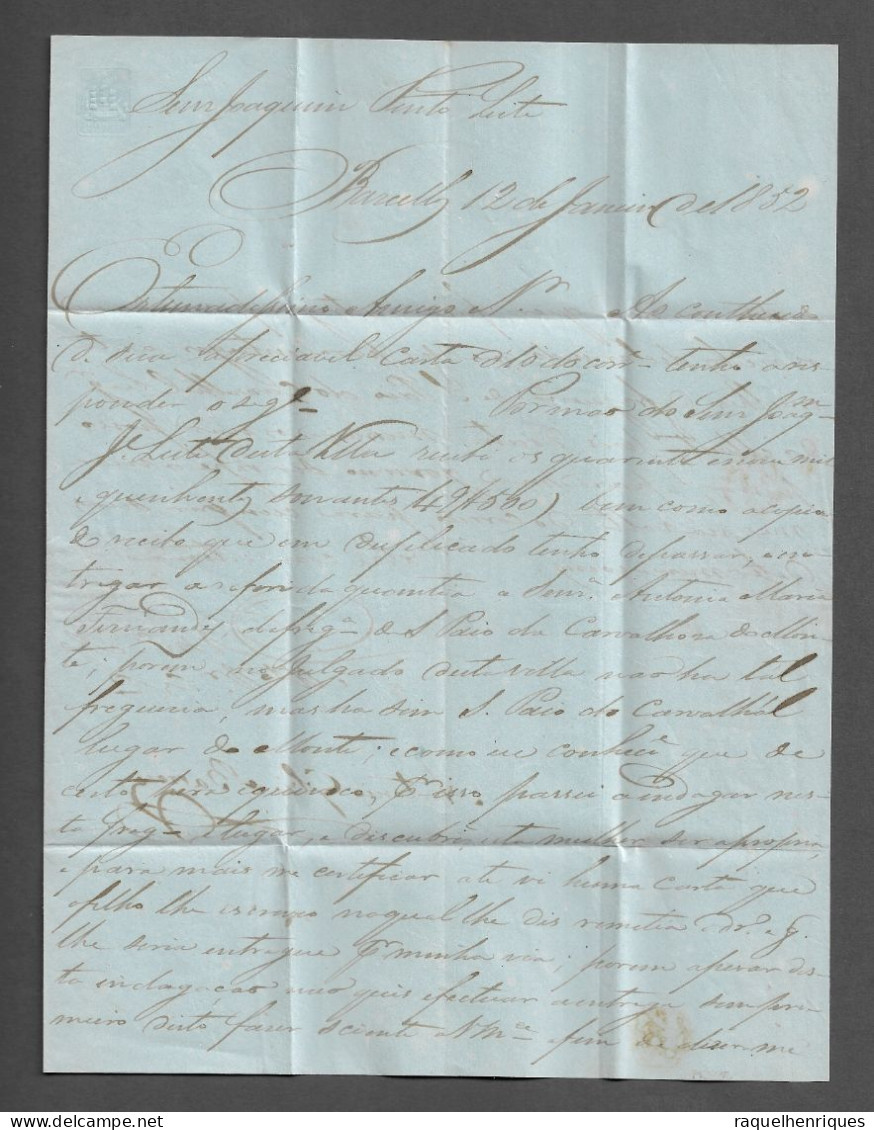 Senr Joaquim Pinto Leite
Barcellos 12 de Janeiro de 1852
Amigo e Snr. Ao contheudo
d. sua apreciavel Carta d 10 do corre tenho a res
ponder o sege Por mão do Senr Joaqm
Je Leite desta Villa recebi os quarenta e nove mil
e quenhentos (49$500) bem como a copia
do recibo que em duplicado tenho de passar, e en-
tregar a referida quantia a Senra Antonia Maria
Fernandes da frega de S. Paio da Carvalhosa do Mon-
te; porem no Julgado desta villa não ha tal
freguesia, mas ha sim S. Paio do Carvalhal
lugar do Monte; e como eu conheci que de
certo houve equivoco, pr isso passei a indagar nes-
ta frega e lugar, e descubri esta mulher ser a propria,
e para mais me certificar até vi huma carta que
o filho lhe escreveo na qual lhe dis remetia o dro e q.
lhe seria entregue pr minha via; porem apezar des-
ta indagação não quis efectuar a entrega sem pri-
meiro disto fazer sciente a Vmce a fim de dizer-me
raquelhenriques
www.delcampe.net